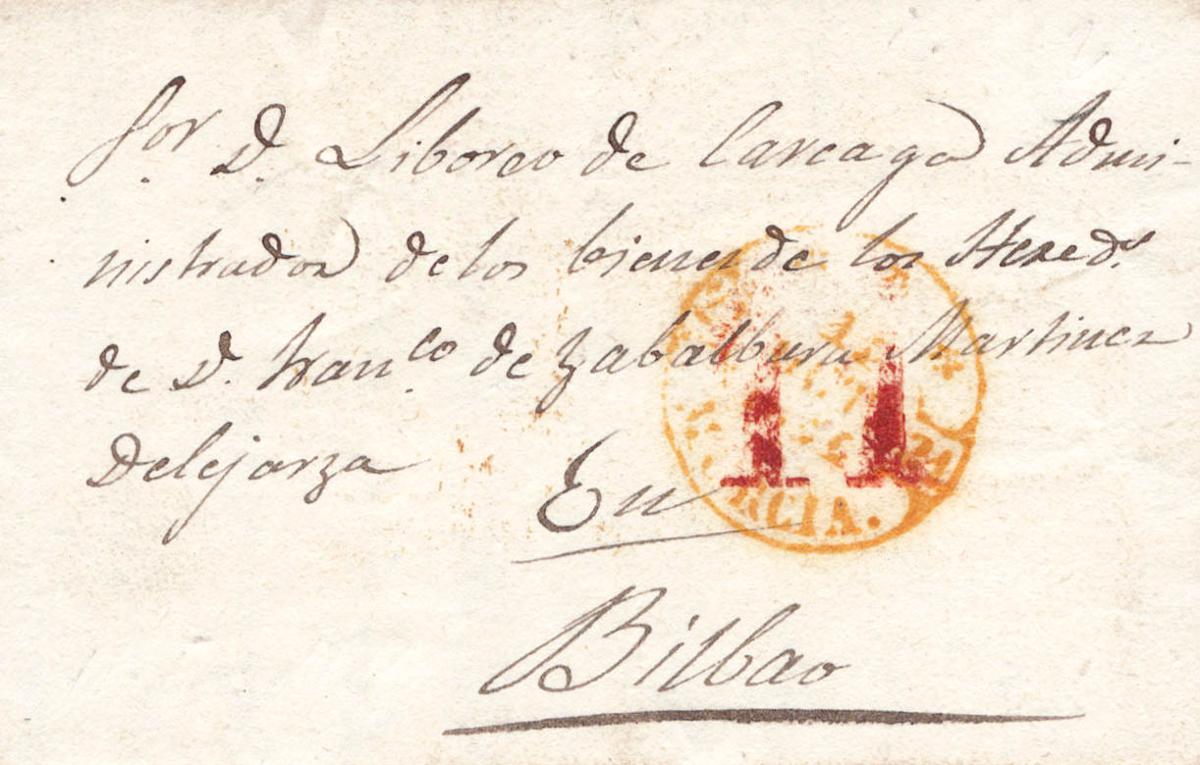 Sor. D. Liboreo de Careaga Admi-
nistrador de los bienes de los Hereds.
de D. Franco. de Zabalburu Martinez
Delejarza
En
11
CIA.
Bilbao